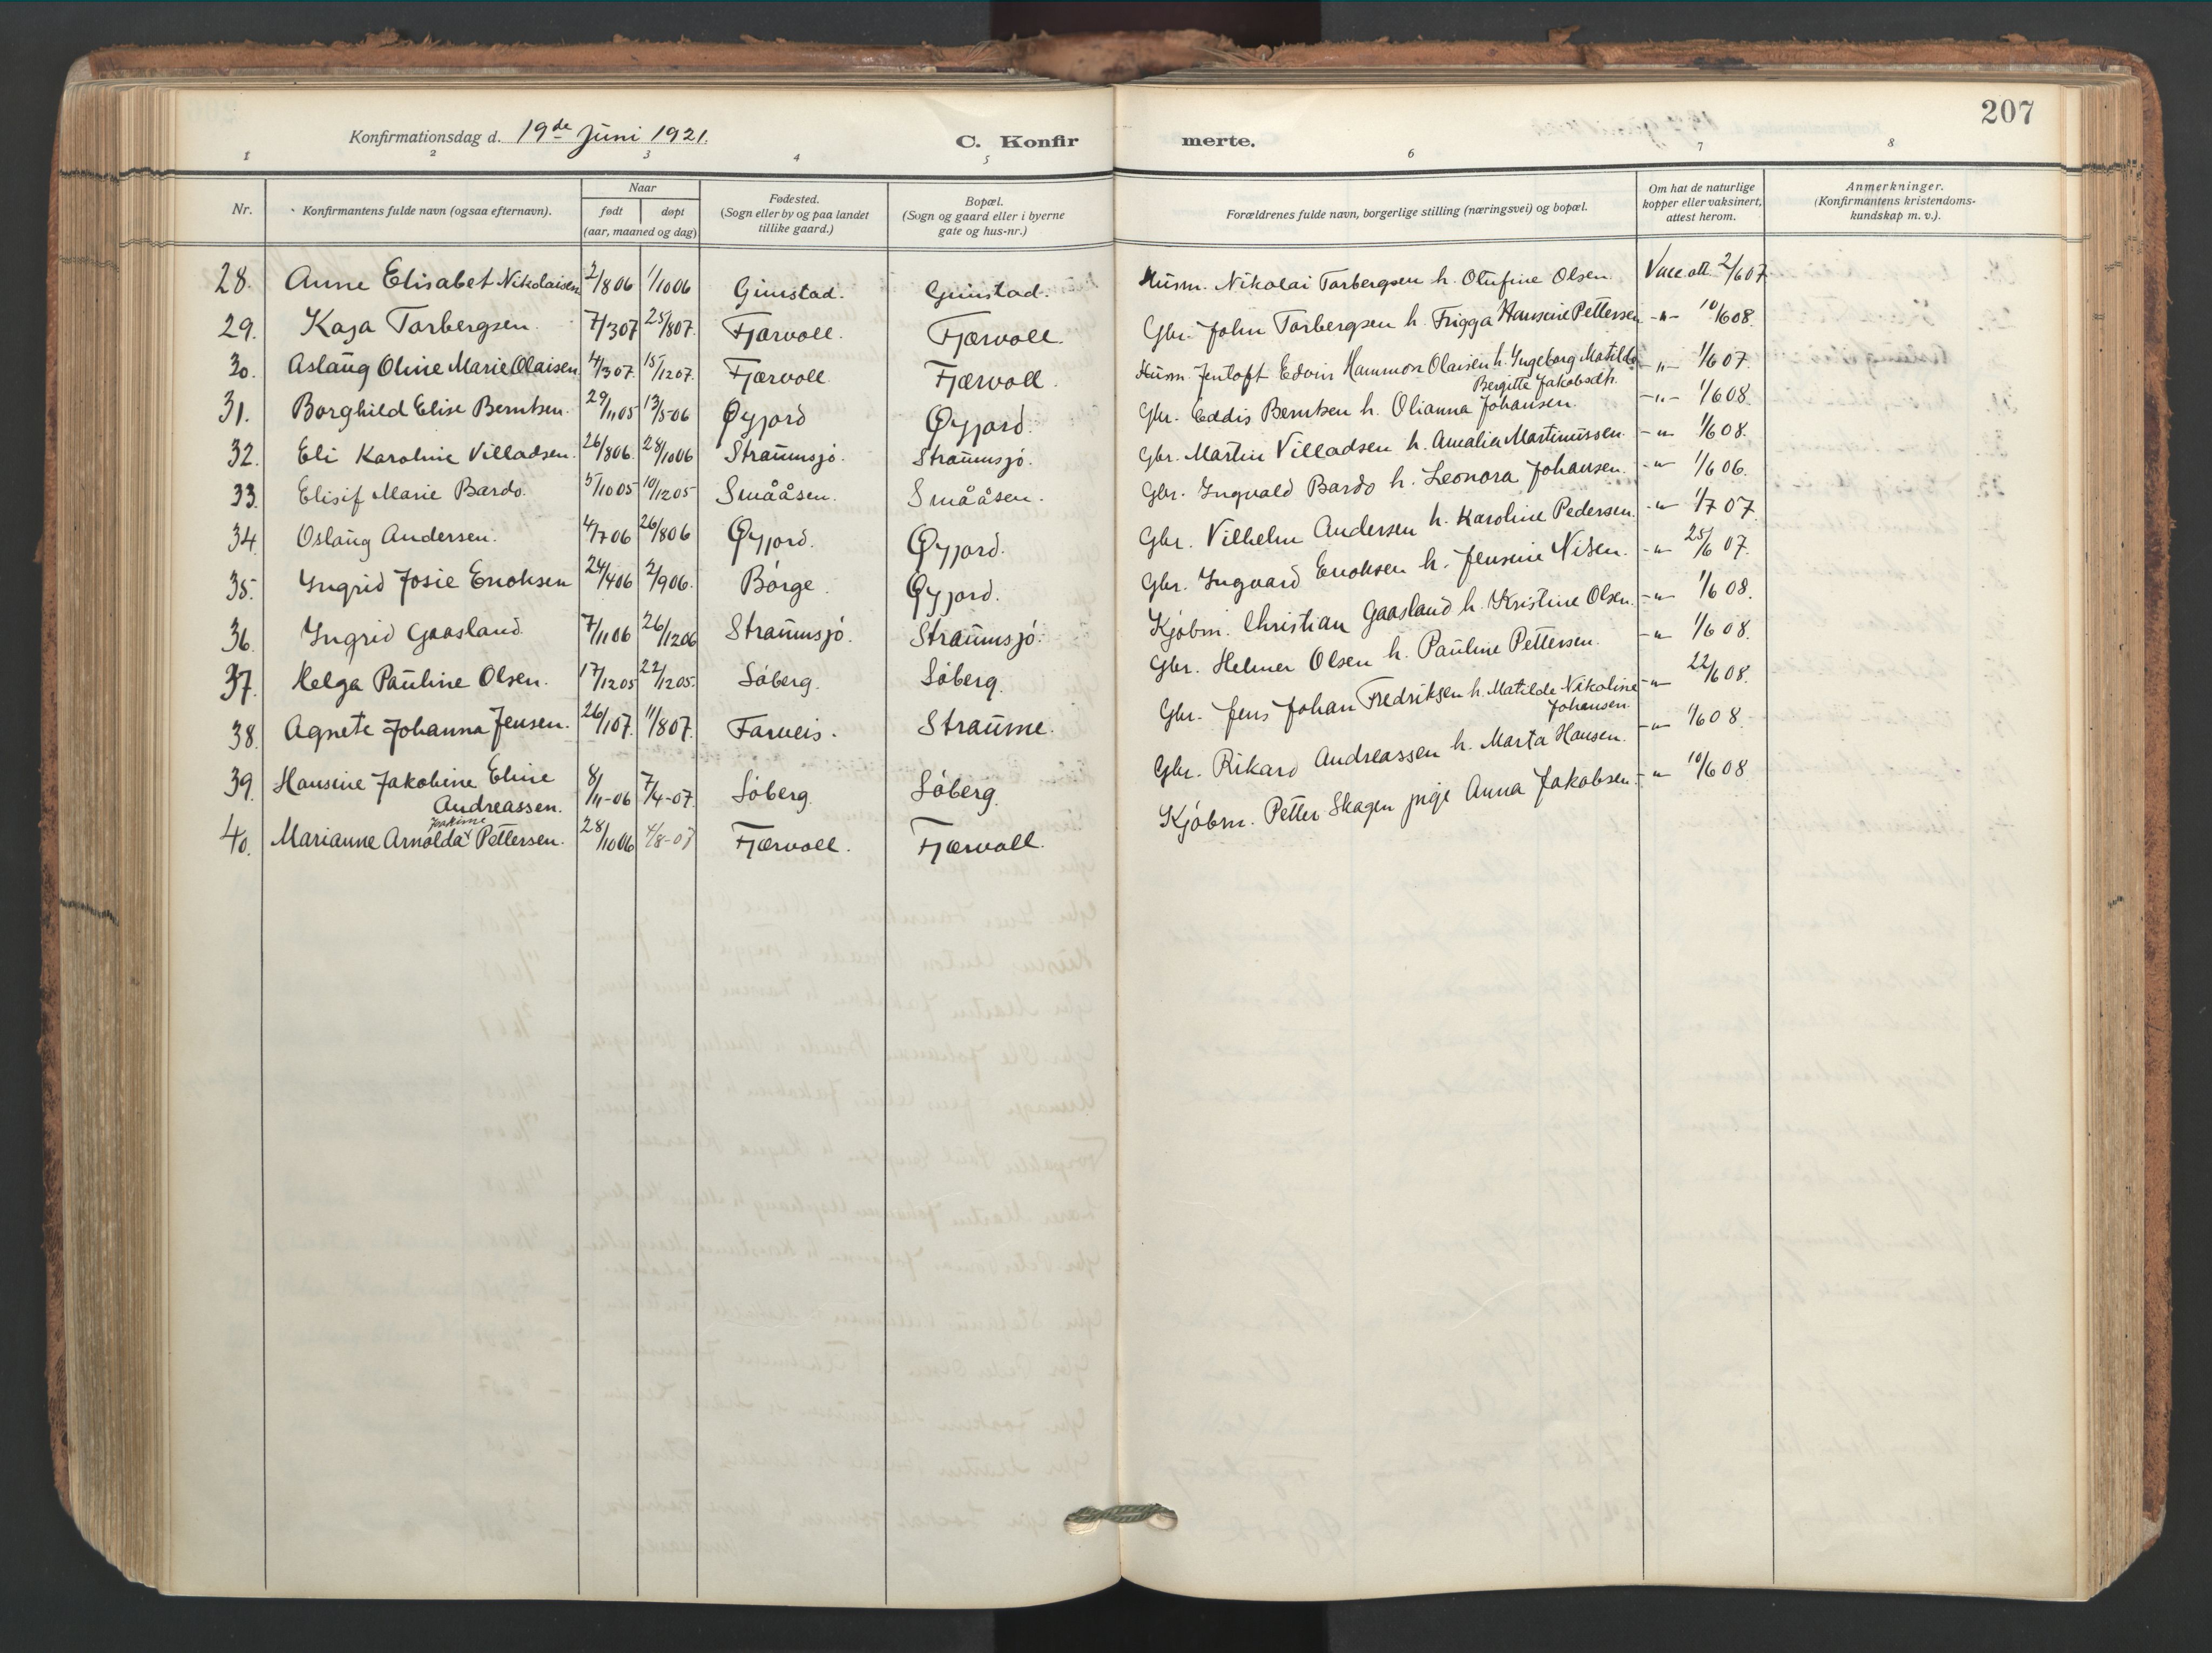 207
Konfirmationsdag d. 19de Juni 1921.
C. Konfirmerte.
1 2 3 4 5 6 7 8
Nr. Konfirmantens fulde navn (ogsaa efternavn). Naar født døpt (aar, maaned og dag) Fødested. (Sogn eller by og paa landet tillike gaard.) Bopæl. (Sogn og gaard eller i byerne gate og hus-nr.) Forældrenes fulde navn, borgerlige stilling (næringsvei) og bopæl. Om hat de naturlige kopper eller vaksinert, attest herom. Anmerkninger. (Konfirmantens kristendoms-kundskap m. v.).
28. Anne Elisabet Nikolaisen 2/8 06 1/10 06 Gimstad. Gimstad. Husm. Nikolai Torbergsen h. Olufine Olsen. Vacc. att. 2/6 07
29. Kaja Torbergsen. 7/3 07 25/8 07. Fjærvoll. Fjærvoll. Gbr. John Torbergsen h. Frigga Hansine Pettersen -"- 10/6 08.
30. Aslaug Oline Marie Olaisen 4/3 07 15/12 07. Fjærvoll. Fjærvoll. Husm. Jentoft Edvin Hammon Olaisen h. Ingeborg Matilde Bergitte Jakobsdtr. -"- 1/6 07.
31. Borghild Elise Berntsen. 29/11 05 13/5-06 Øyjord Øyjord. Gbr. Eddis Berntsen h. Olianna Johansen. -"- 1/6 08.
32. Eli Karoline Villadsen. 26/8 06. 28/10 06 Straumsjø. Straumsjø. Gbr. Martin Villadsen h. Amalia Martinussen. -"- 1/6 08.
33. Elisif Marie Bardo. 5/10 05 10/12 05 Smååsen. Smååsen. Gbr. Ingvald Bardo h. Leonora Johansen. -"- 1/6 06.
34. Oslaug Andersen. 4/7 06 26/8 06 Øyjord. Øyjord. Gbr. Vilhelm Andersen h. Karoline Pedersen. -"- 1/7 07.
35. Ingrid Josie Enoksen 24/4 06 2/9 06. Børge. Øyjord. Gbr. Ingvard Enoksen h. Jensine Nilsen. -"- 25/6 07.
36. Ingrid Gaasland. 7/11 06 26/12 06 Straumsjø. Straumsjø. Kjøbm. Christian Gaasland h. Kristine Olsen. -"- 1/6 08.
37. Helga Pauline Olsen. 17/12 05 22/12 05. Søberg. Søberg. Gbr. Helmer Olsen h. Pauline Pettersen. -"- 1/6 08.
38. Agnete Johanna Jensen. 26/1 07. 11/8 07. Farveis. Straume. Gbr. Jens Johan Fredriksen h. Matilde Nikoline Johansen. -"- 22/6 08.
39. Hansine Jakobine Eline Andreassen. 8/11-06 7/4-07. Søberg. Søberg. Gbr. Rikard Andreassen h. Marta Hansen. -"- 1/6 08.
40. Marianne Arnolda Joakime Pettersen. 28/10 06 4/8-07 Fjærvoll. Fjærvoll. Kjøbm. Petter Skagen pige Anna Jakobsen. -"- 10/6 08